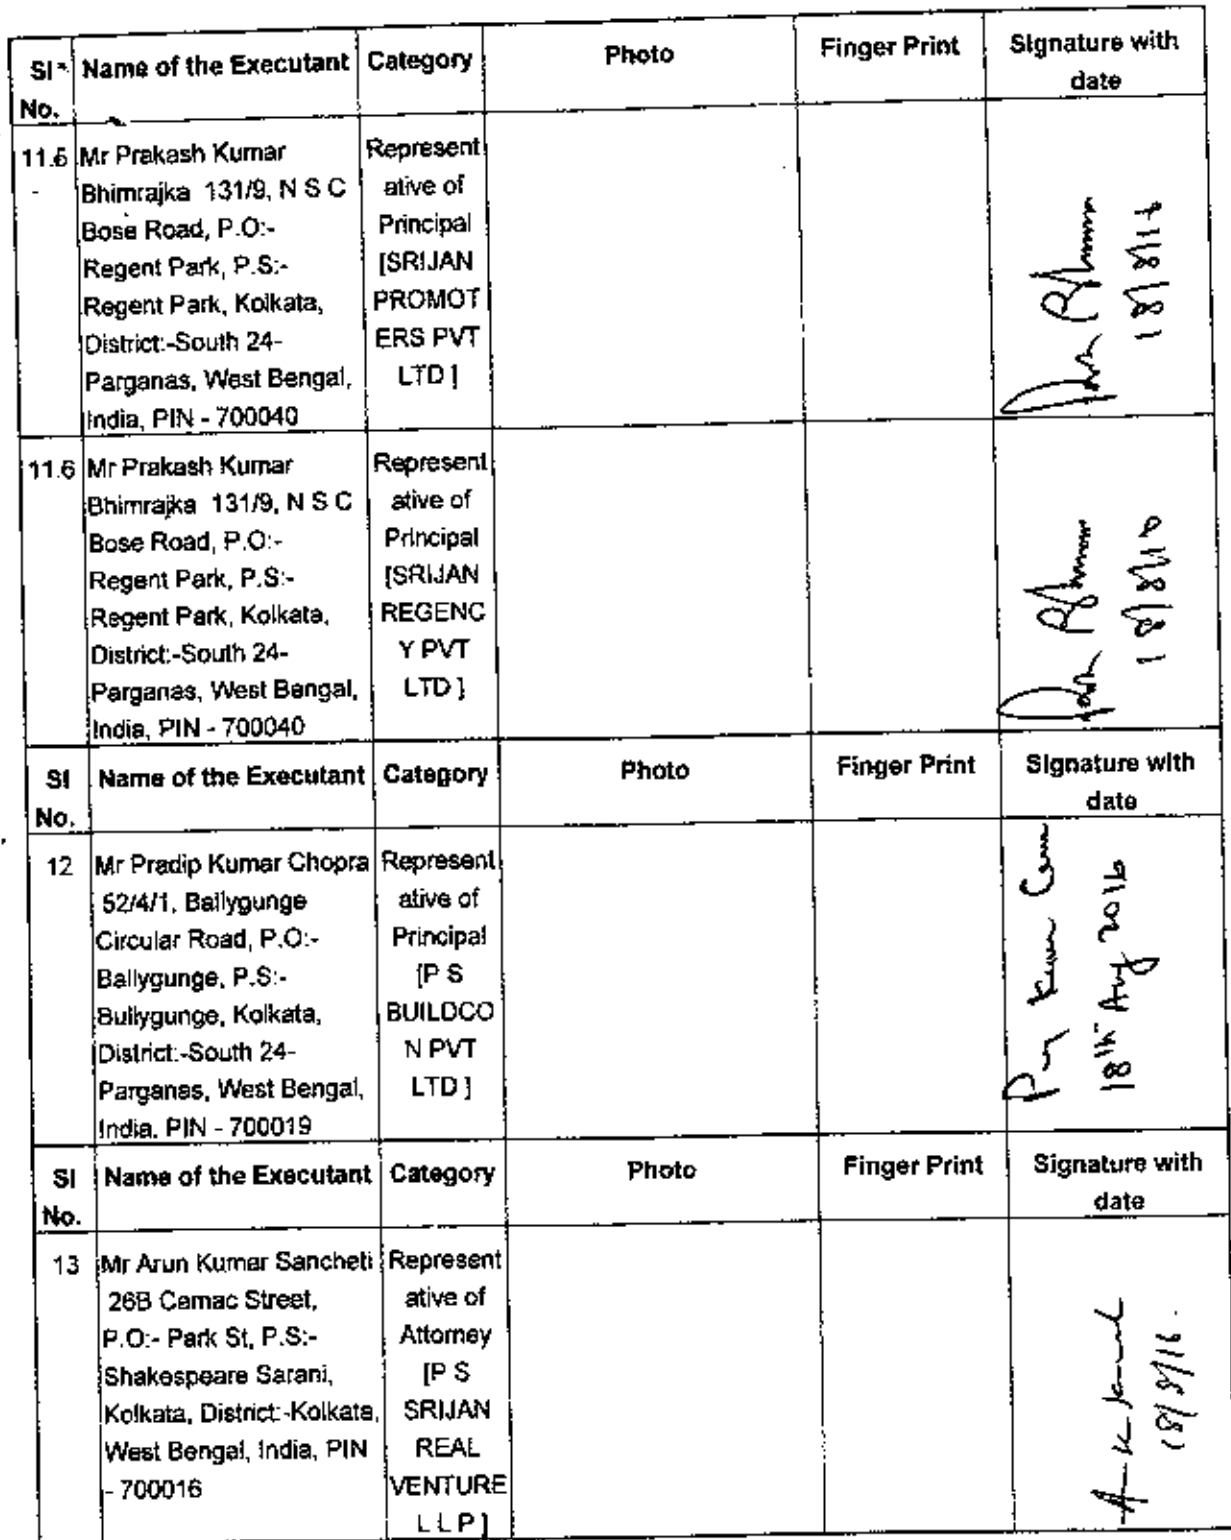 Sl No. Name of the Executant Category Photo Finger Print Signature with date
11.5 Mr Prakash Kumar
Bhimrajka 131/9, N S C
Bose Road, P.O:-
Regent Park, P.S:-
Regent Park, Kolkata,
District:-South 24-
Parganas, West Bengal,
India, PIN - 700040
Represent
ative of
Principal
[SRIJAN
PROMOT
ERS PVT
LTD ]
18/8/16
11.6 Mr Prakash Kumar
Bhimrajka 131/9, N S C
Bose Road, P.O:-
Regent Park, P.S:-
Regent Park, Kolkata,
District:-South 24-
Parganas, West Bengal,
India, PIN - 700040
Represent
ative of
Principal
[SRIJAN
REGENC
Y PVT
LTD ]
18/8/16
Sl No. Name of the Executant Category Photo Finger Print Signature with date
12 Mr Pradip Kumar Chopra
52/4/1, Ballygunge
Circular Road, P.O:-
Ballygunge, P.S:-
Bullygunge, Kolkata,
District:-South 24-
Parganas, West Bengal,
India, PIN - 700019
Represent
ative of
Principal
[P S
BUILDCO
N PVT
LTD ]
18th Aug 2016
Sl No. Name of the Executant Category Photo Finger Print Signature with date
13 Mr Arun Kumar Sancheti
26B Camac Street,
P.O:- Park St, P.S:-
Shakespeare Sarani,
Kolkata, District:-Kolkata,
West Bengal, India, PIN
- 700016
Represent
ative of
Attorney
[P S
SRIJAN
REAL
VENTURE
L L P ]
18/8/16.